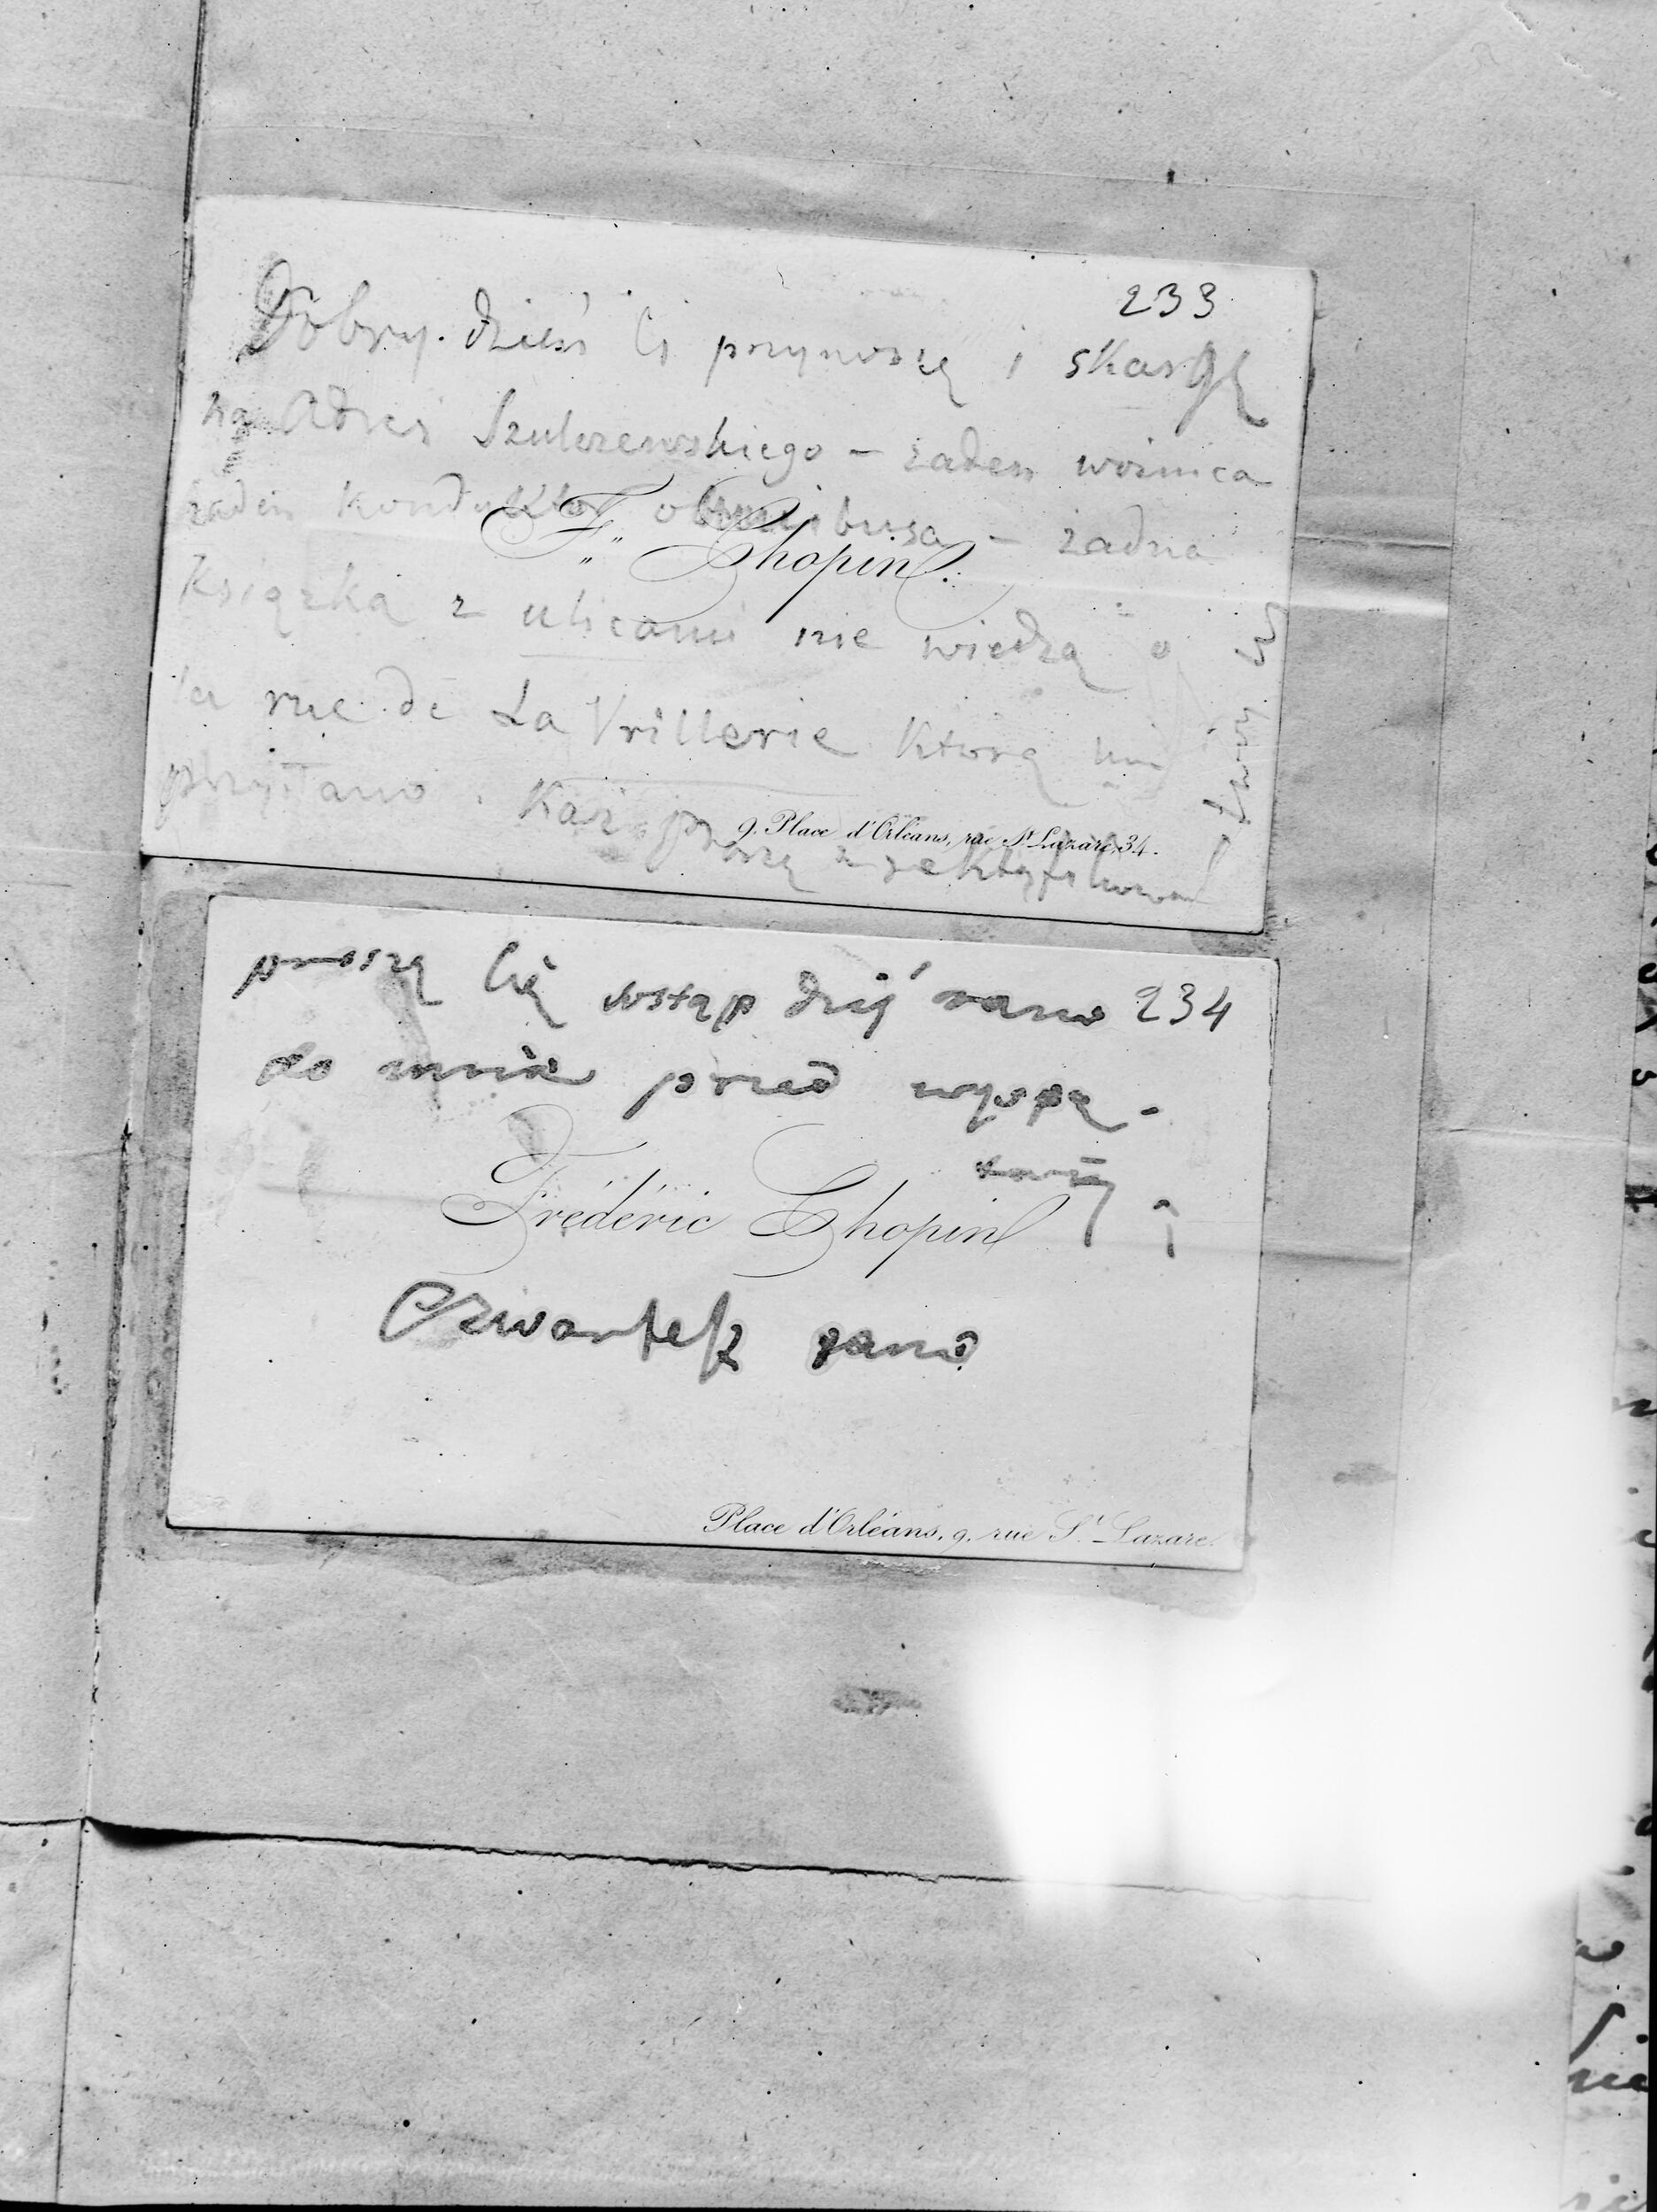 233
Dobry dzień Ci przynoszę i skargę
na Adres Szulczewskiego – żaden woźnica
żaden konduktor obmnibusa – żadna
F. Chopin.
Książka z ulicami nie wiedzą o
la rue de La Vrillerie którą mi
przysłano. Każ proszę zrektyfikować
9. Place d'Orléans, rue St. Lazare, 34.
proszę Cię wstąp dziś rano 234
do mnie przed wyspą.
Frédéric Chopin
Czwartek rano
Place d'Orléans, 9. rue St. Lazare.